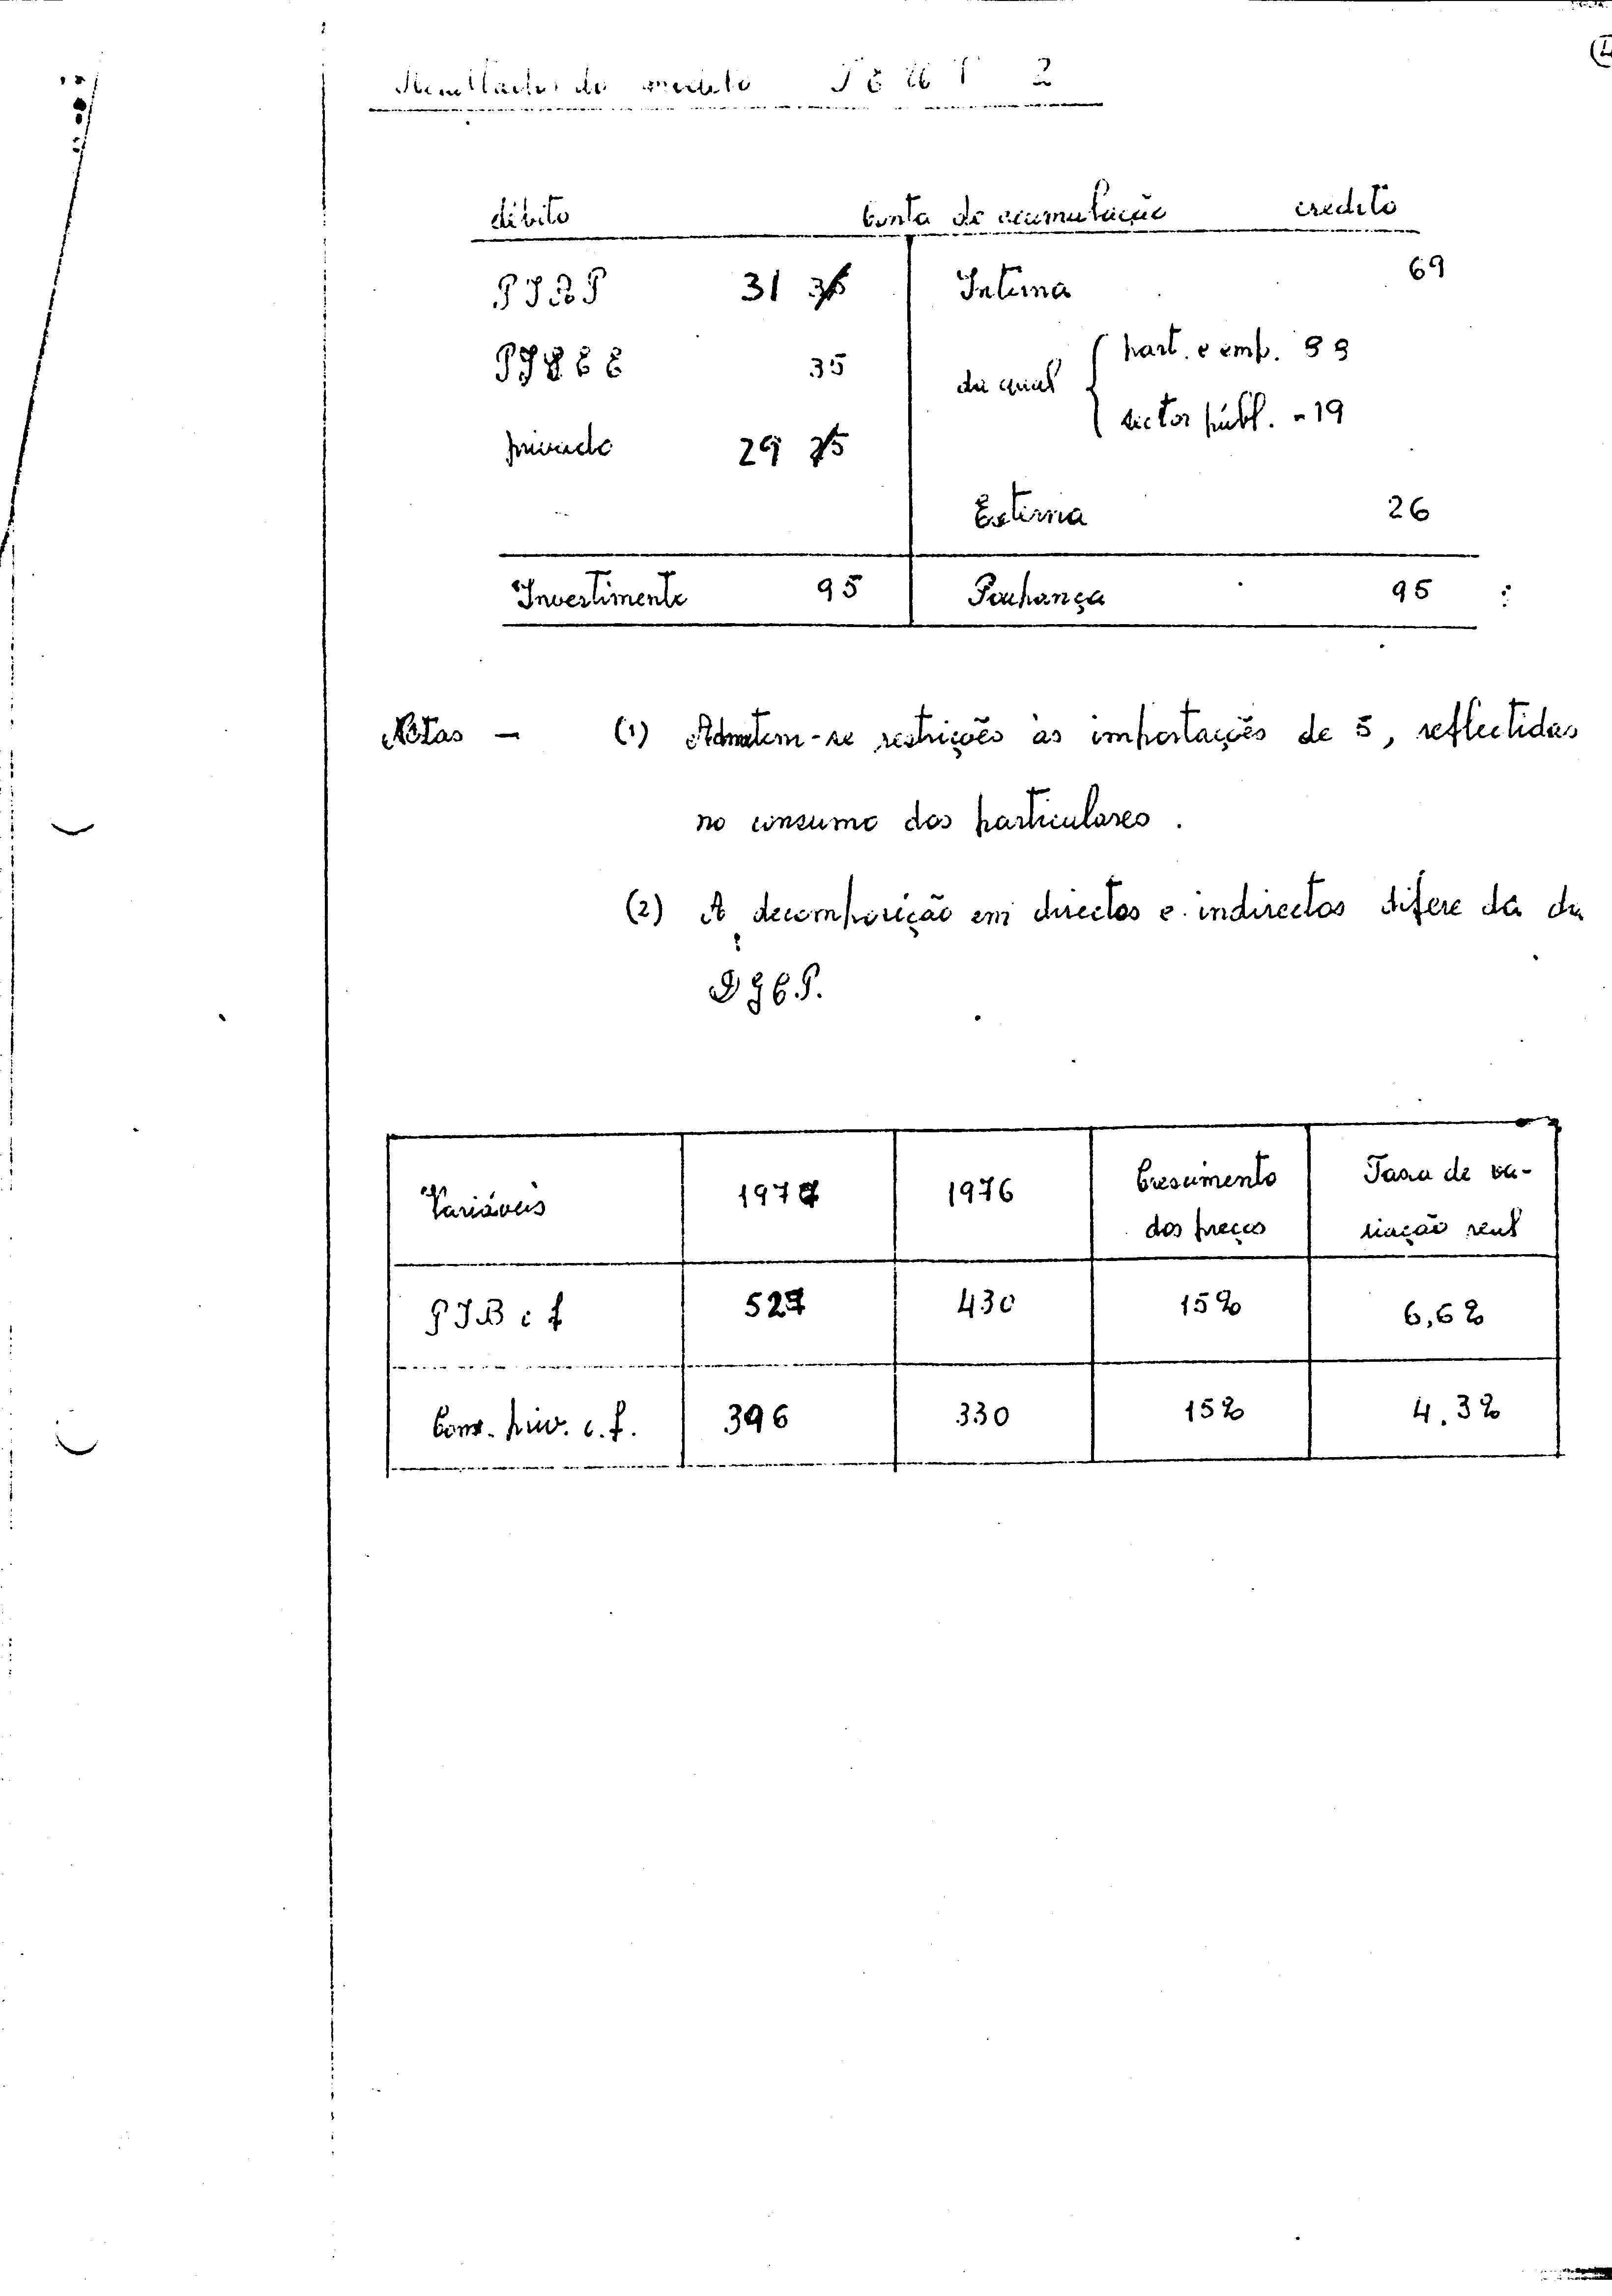 Resultados do modelo TEUT 2
débito Conta de acumulação credito
PIAP 31 Interna 69
35 da qual part. e emp. 88
sector públ. -19
privado 29
Externa 26
Investimento 95 Poupança 95
Notas — (1) Admitem-se restrições às importações de 5, reflectidas
no consumo dos particulares.
(2) A decomposição em directos e indirectos difere da da
DGCP.
Variáveis 1977 1976 Crescimento dos preços Taxa de variação real
PIB c f 527 430 15% 6,6%
Cons. priv. c. f. 396 330 15% 4.3%